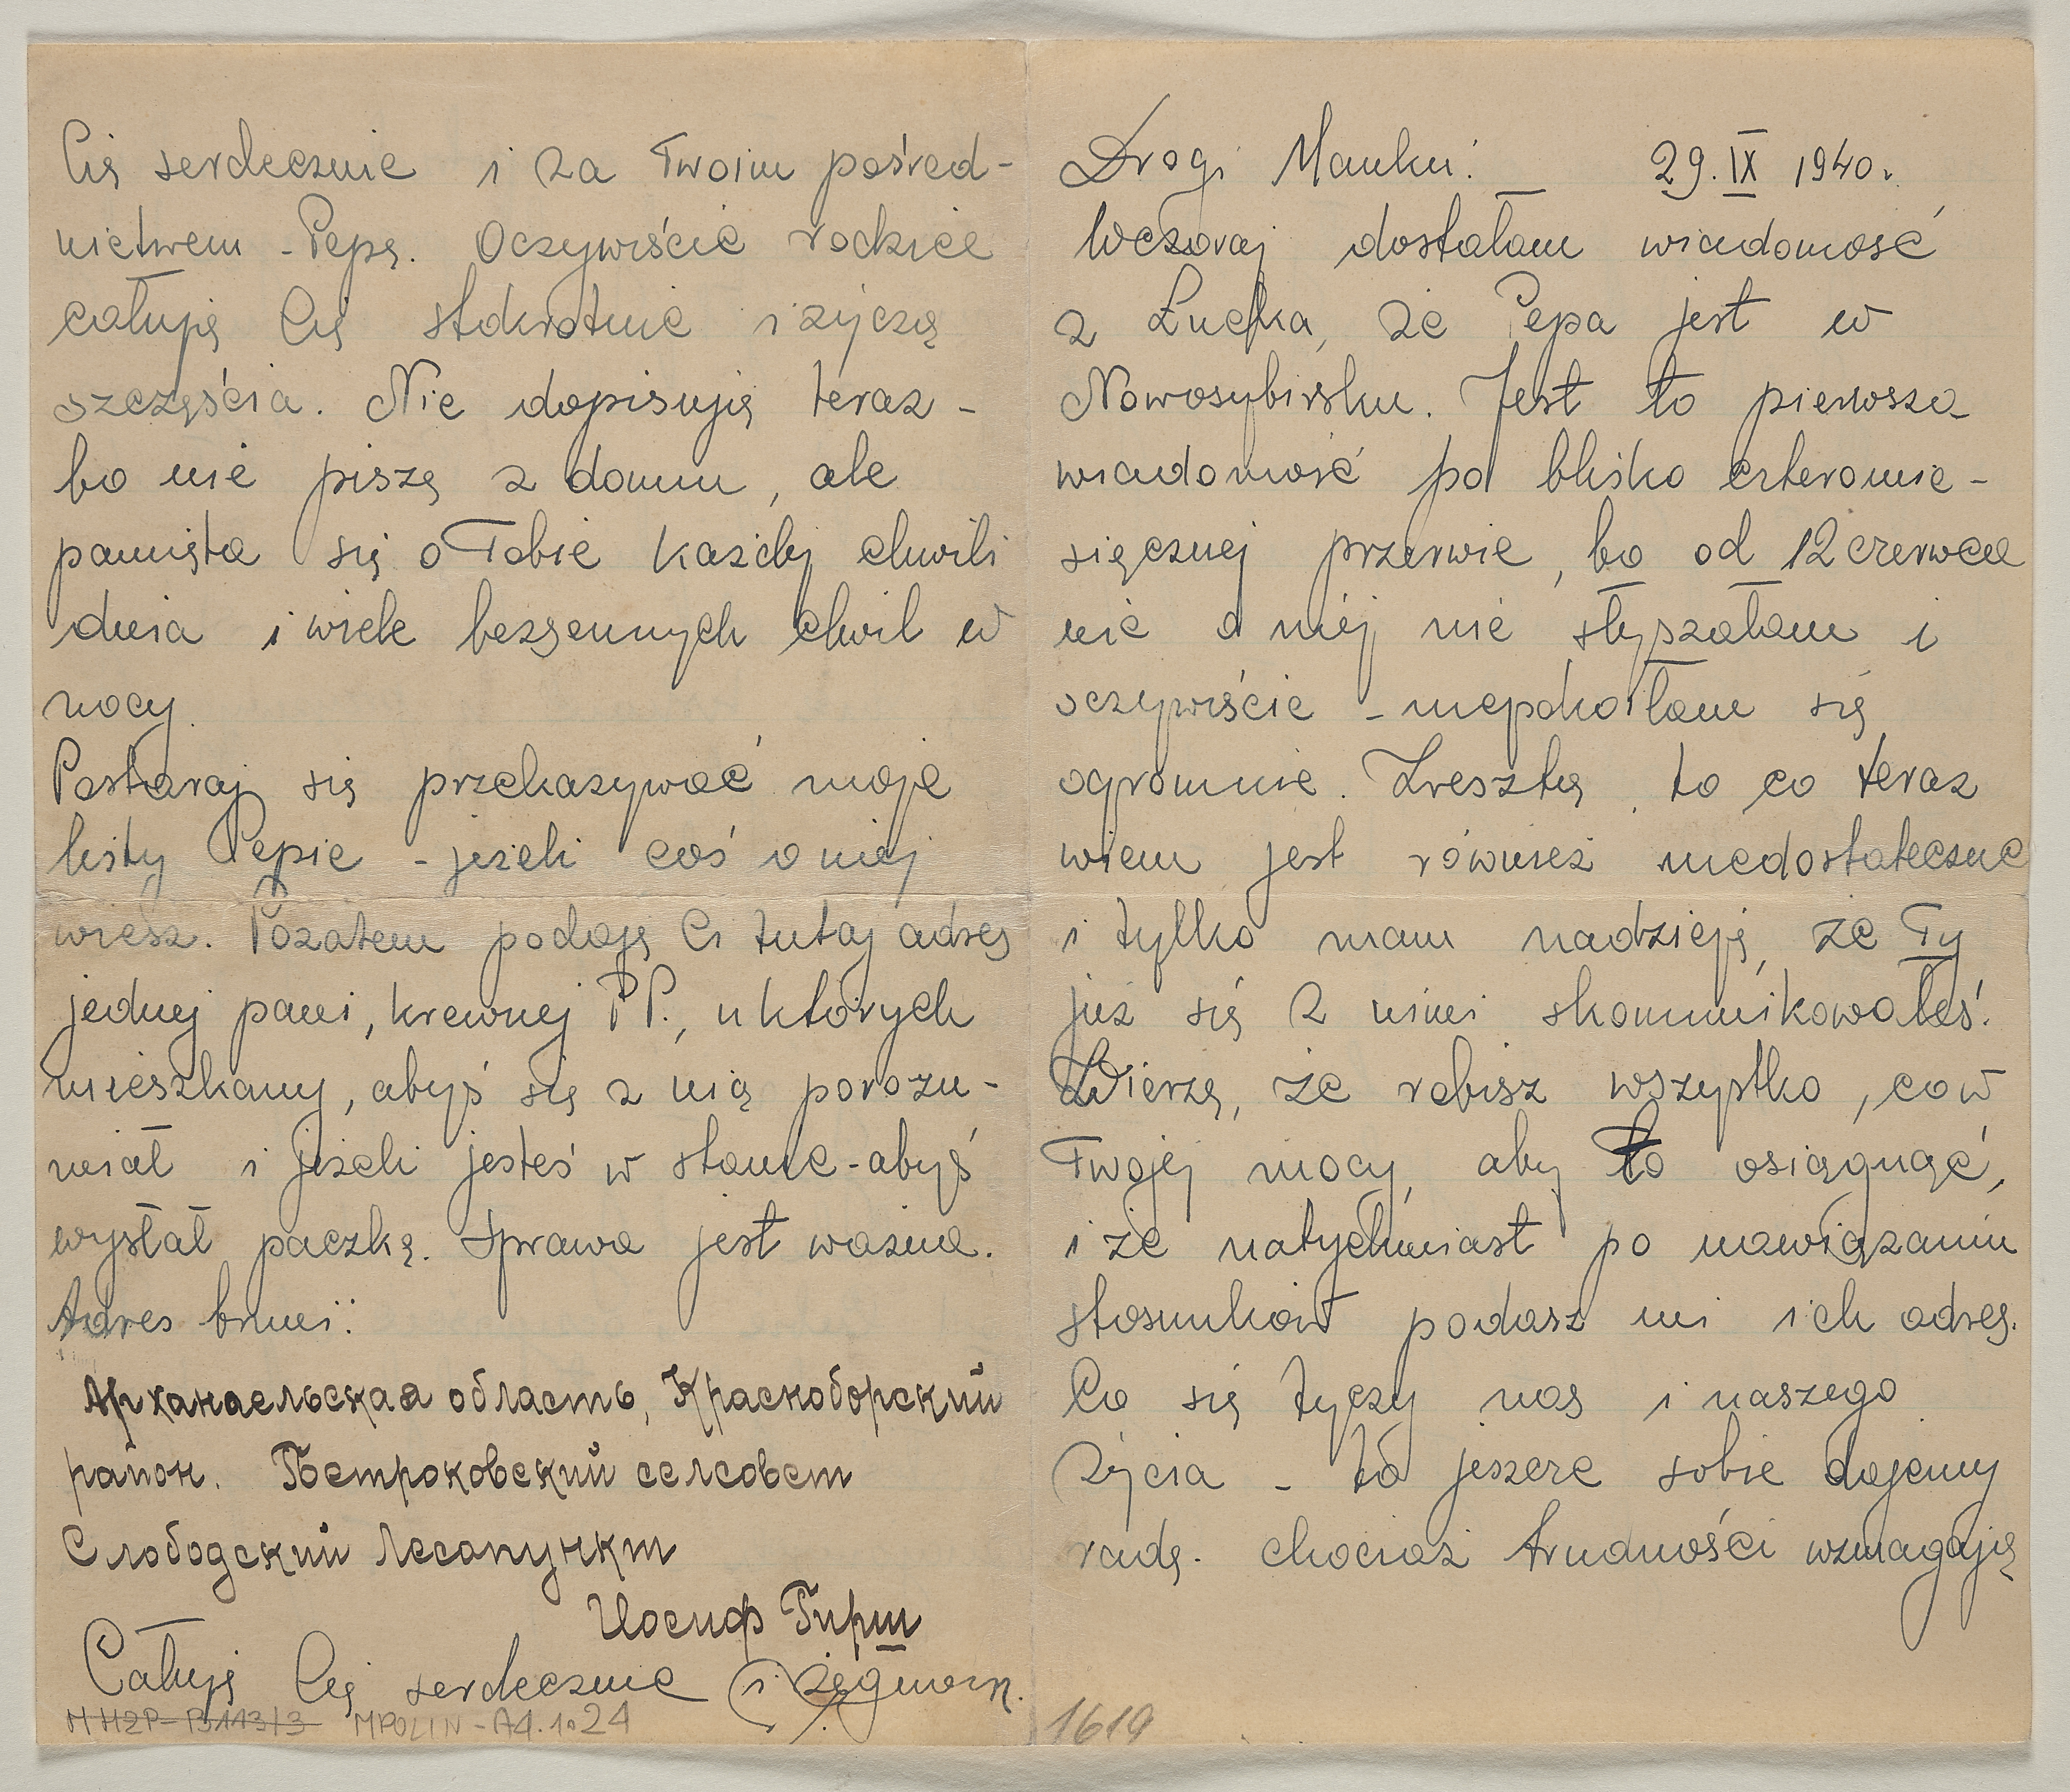 Drogi Mańku! 29. IX 1940.
Wczoraj dostałam wiadomość
z Łucka, że Pepa jest w
Nowosybirsku. Jest to pierwsza
wiadomość po blisko cztеromie-
sięcznej przerwie, bo od 12 czerwca
nic o niej nie słyszałam i
oczywiście - niepokoiłam się
ogromnie. Zresztą, to co teraz
wiem jest również niedostateczne
i tylko mam nadzieję, że Ty
już się z nimi skomunikowałeś.
Wierzę, że robisz wszystko, co w
Twojej mocy, aby to osiągnąć,
i że natychmiast po nawiązaniu
stosunków podasz mi ich adres.
Co się tyczy nas i naszego
życia - to jeszcze sobie dajemy
radę. chociaż trudności wzmagają
Cię serdecznie i za Twoim pośred-
nictwem - Pepę. Oczywiście rodzice
całują Cię stokrotnie i życzą
szczęścia. Nie dopisują teraz -
bo nie piszę z domu, ale
pamięta się o Tobie każdej chwili
dnia i wiele bezsennych chwil w
nocy.
Postaraj się przekazywać moje
listy Pepie - jeżeli coś o niej
wiesz. Pozatem podaję Ci tutaj adres
jednej pani, krewnej P.P., u których
mieszkamy, abyś się z nią porozu-
miał i jeżeli jesteś w stanie - abyś
wysłał paczkę. Sprawa jest ważna.
Adres brzmi:
Архангельская область, Красноборский
район. Петроковский селсовет
Слободский Лесопункт
Иосиф Гирш
Całuję Cię serdecznie i żegnam.
MHŻP-B113/3 MPOLIN-A4.1.24
1619